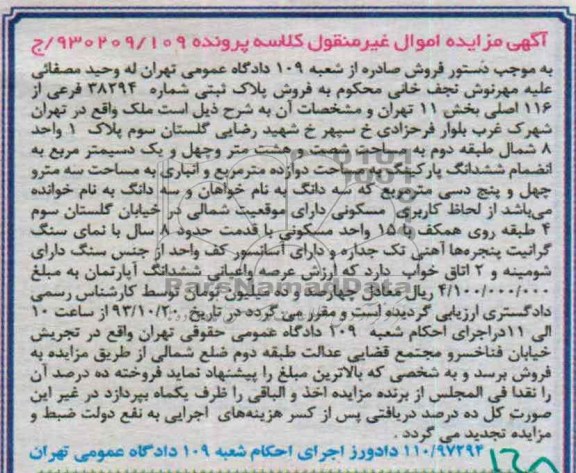 آگهی مزایده اموال غیرمنقول کلاسه پرونده ۹۳۰۲۰۹/۱۰۹/ج
به موجب دستور فروش صادره از شعبه ۱۰۹ دادگاه عمومی تهران له وحید مصفائی
علیه مهرنوش نجف خانی محکوم به فروش پلاک ثبتی شماره ۳۸۲۹۴ فرعی از
۱۱۶ اصلی بخش ۱۱ تهران و مشخصات آن به شرح ذیل است ملک واقع در تهران
شهرک غرب بلوار فرحزادی خ سپهر خ شهید رضایی گلستان سوم پلاک ۱ واحد
۸ شمال طبقه دوم به مساحت شصت و هشت متر وچهل و یک دسیمتر مربع به
انضمام ششدانگ پارکینگ به مساحت دوازده مترمربع و انباری به مساحت سه مترو
چهل و پنج دسی مترمربع که سه دانگ به نام خواهان و سه دانگ به نام خوانده
میباشد از لحاظ کاربری مسکونی دارای موقعیت شمالی در خیابان گلستان سوم
۴ طبقه روی همکف ۱۵ واحد مسکونی با قدمت حدود ۸ سال با نمای سنگ
گرانیت پنجره‌ها آهنی تک جداره و دارای آسانسور کف واحد از جنس سنگ دارای
شومینه و ۲ اتاق خواب دارد که ارزش عرصه واعیانی ششدانگ آپارتمان به مبلغ
۴/۱۰۰/۰۰۰/۰۰۰ ریال معادل چهارصد و ده میلیون تومان توسط کارشناس رسمی
دادگستری ارزیابی گردیده است و مقرر می گردد در تاریخ ۹۳/۱۰/۲۰ از ساعت ۱۰
الی ۱۱دراجرای احکام شعبه ۱۰۹ دادگاه عمومی حقوقی تهران واقع در تجریش
خیابان فناخسرو مجتمع قضایی عدالت طبقه دوم ضلع شمالی از طریق مزایده به
فروش برسد و به شخصی که بالاترین مبلغ را پیشنهاد نماید فروخته ده درصد آن
را نقدا فی المجلس از برنده مزایده اخذ و الباقی را ظرف یکماه بپردازد در غیر این
صورت کل ده درصد دریافتی پس از کسر هزینه‌های اجرایی به نفع دولت ضبط و
مزایده تجدید می گردد .
۱۱۰/۹۷۲۹۴ دادورز اجرای احکام شعبه ۱۰۹ دادگاه عمومی تهران
ParsNamadData